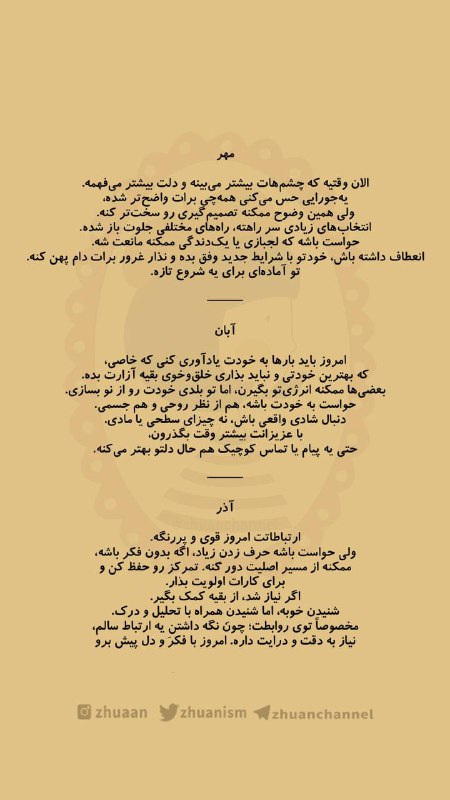 مهر
الان وقتیه که چشم‌هات بیشتر می‌بینه و دلت بیشتر می‌فهمه.
یه‌جورایی حس می‌کنی همه‌چی برات واضح‌تر شده،
ولی همین وضوح ممکنه تصمیم‌گیری رو سخت‌تر کنه.
انتخاب‌های زیادی سر راهته، راه‌های مختلفی جلوت باز شده.
حواست باشه که لجبازی یا یک‌دندگی ممکنه مانعت شه.
انعطاف داشته باش، خودتو با شرایط جدید وفق بده و نذار غرور برات دام پهن کنه.
تو آماده‌ای برای یه شروع تازه.
آبان
امروز باید بارها به خودت یادآوری کنی که خاصی،
که بهترین خودتی و نباید بذاری خلق‌وخوی بقیه آزارت بده.
بعضی‌ها ممکنه انرژی‌تو بگیرن، اما تو بلدی خودت رو از نو بسازی.
حواست به خودت باشه، هم از نظر روحی و هم جسمی.
دنبال شادی واقعی باش، نه چیزای سطحی یا مادی.
با عزیزانت بیشتر وقت بگذرون،
حتی یه پیام یا تماس کوچیک هم حال دلتو بهتر می‌کنه.
آذر
ارتباطاتت امروز قوی و پررنگه.
ولی حواست باشه حرف زدن زیاد، اگه بدون فکر باشه،
ممکنه از مسیر اصلیت دور کنه. تمرکز رو حفظ کن و
برای کارات اولویت بذار.
اگر نیاز شد، از بقیه کمک بگیر.
شنیدن خوبه، اما شنیدن همراه با تحلیل و درک.
مخصوصاً توی روابطت؛ چون نگه داشتن یه ارتباط سالم،
نیاز به دقت و درایت داره. امروز با فکر و دل پیش برو
zhuaan zhuanism zhuanchannel